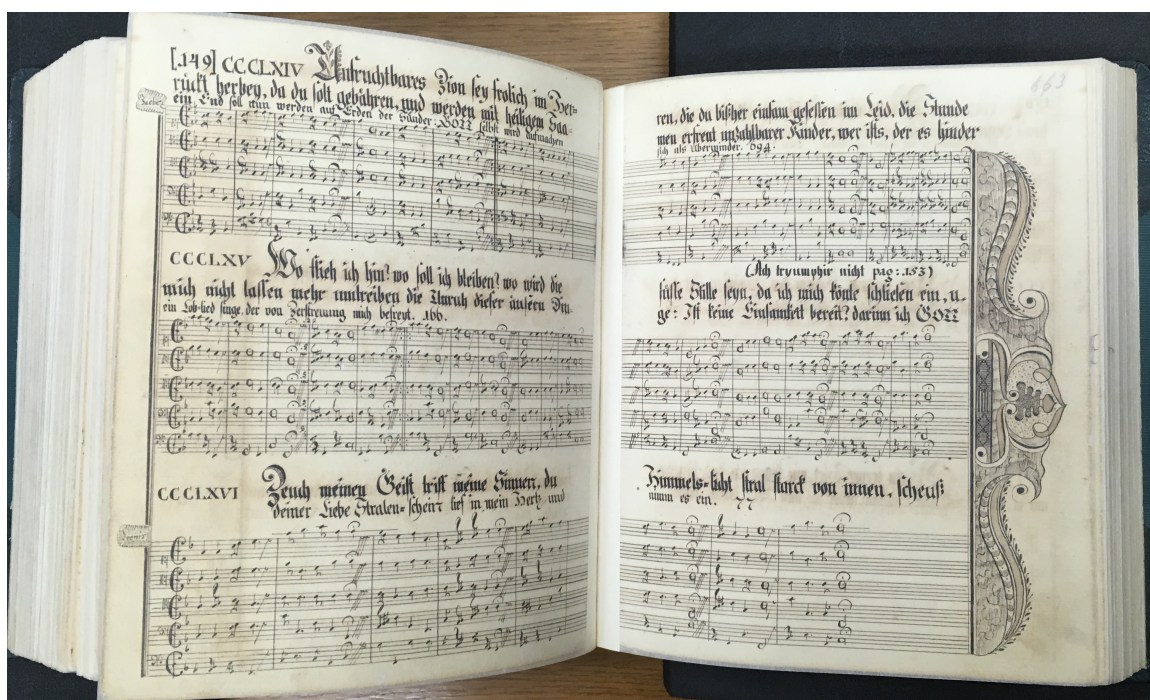 [149] CCCLXIV Unfruchtbares Zion sey frolich im Her-
ruckt herbey, da du solt gebähren, und werden mit heiligem Saa-
ein End soll nun werden auf Erden der Sünder. GOTT selbst wird aufmachen
CCCLXV Wo flieh ich hin? wo soll ich bleiben? wo wird die
mich nicht lassen mehr umtreiben die Unruh dieser äussern Din-
ein Lob-lied singe, der von Zerstreuung mich befreyt. 166.
CCCLXVI Zeuch meinen Geist triff meine Sinnen, du
deiner Liebe Stralen-schein tief in mein Hertz und
663
ren, die du bißher einsam gesessen im Leid, die Stunde
men erfreut unzahlbarer Kinder, wer ists, der es hinder
sich als Uberwinder. 694.
(Ach tryumphir nicht pag: 153)
süsse Stille seyn, da ich mich könte schliesen ein, u.
ge: Ist keine Einsamkeit bereit? darinn ich GOTT
Himmels-licht stral starck von innen, scheuß
nimm es ein. 77